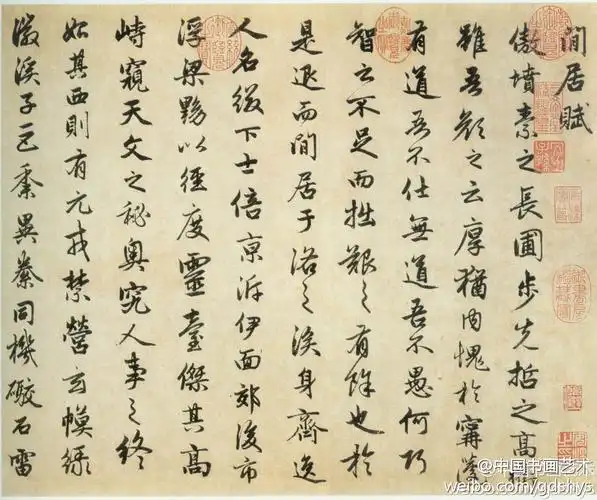 閒居賦
傲墳素之長圃步先哲之高衢
雖吾顏之云厚猶内愧於甯蘧
有道吾不仕無道吾不愚何巧
智之不足而拙艱之有餘也於
是退而閒居于洛之涘身齊逸
人名綴下士倍京泝伊面郊後市
浮梁黝以徑度靈臺傑其高
峙窺天文之秘奧究人事之終
始其西則有元戎禁營玄幙綠
徽溪子巨黍異絭同機礮石雷
@中国书画艺术
weibo.com/gdshys